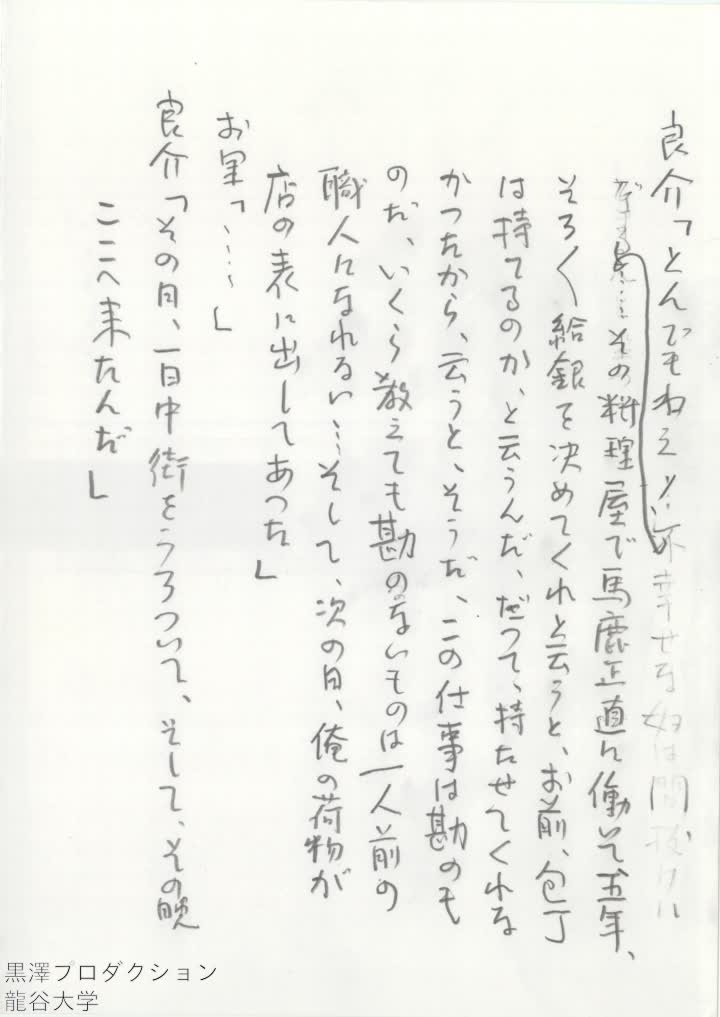 良介「とんでもねえ！…不幸せな奴は間抜けに
…その料理屋で馬鹿正直に働いて五年、
そろ〱給銀を決めてくれと云うと、お前、包丁
は持てるのか、と云うんだ、だって、持たせてくれな
かったから、云うと、そうだ、この仕事は勘のも
のだ、いくら教えても勘のないものは一人前の
職人になれない…そして、次の日、俺の荷物が
店の表に出してあった」
お里「……」
良介「その日、一日中街をうろついて、そして、その晩
ここへ来たんだ」
黒澤プロダクション
龍谷大学